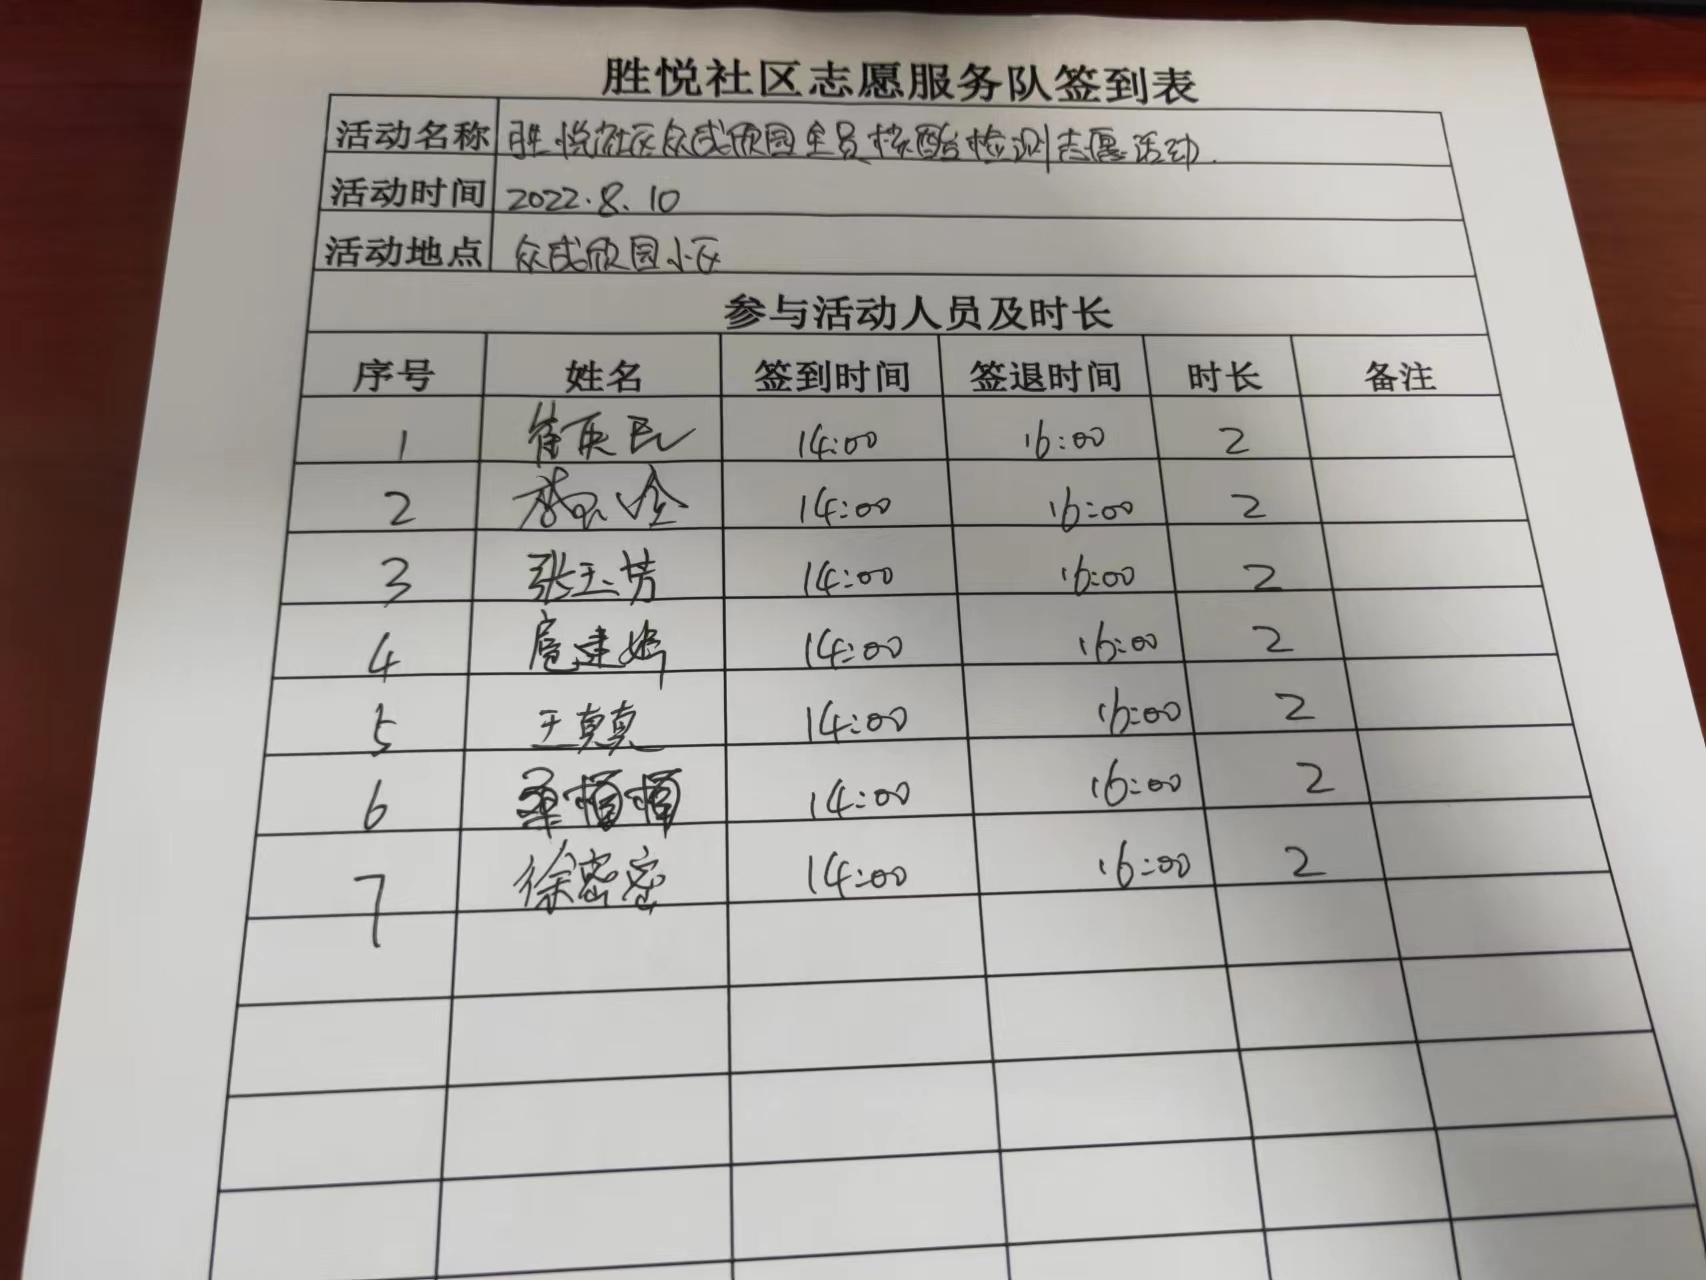 胜悦社区志愿服务队签到表
活动名称 胜悦社区众成欣园全员核酸检测志愿活动.
活动时间 2022.8.10
活动地点 众成欣园小区
参与活动人员及时长
序号 姓名 签到时间 签退时间 时长 备注
1 崔英民 14:00 16:00 2
2 14:00 16:00 2
3 张玉芳 14:00 16:00 2
4 扈建 14:00 16:00 2
5 王真真 14:00 16:00 2
6 14:00 16:00 2
7 徐密密 14:00 16:00 2